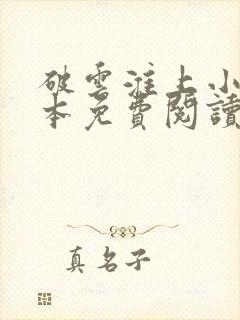 破雲淮上小
本免費閱讀
真名子